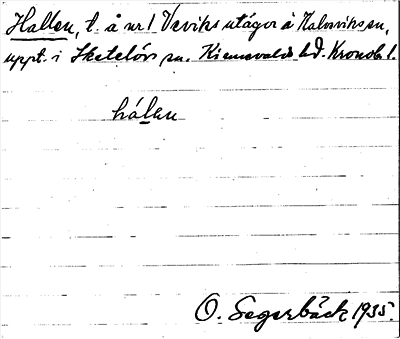 Hallen, l. å nr 1 Veviks utägor å Kalvsviks sn,
uppt. i Skatelövs sn. Kinnevalds hd. Kronob. l.
hálen
O. Segerbäck 1935.